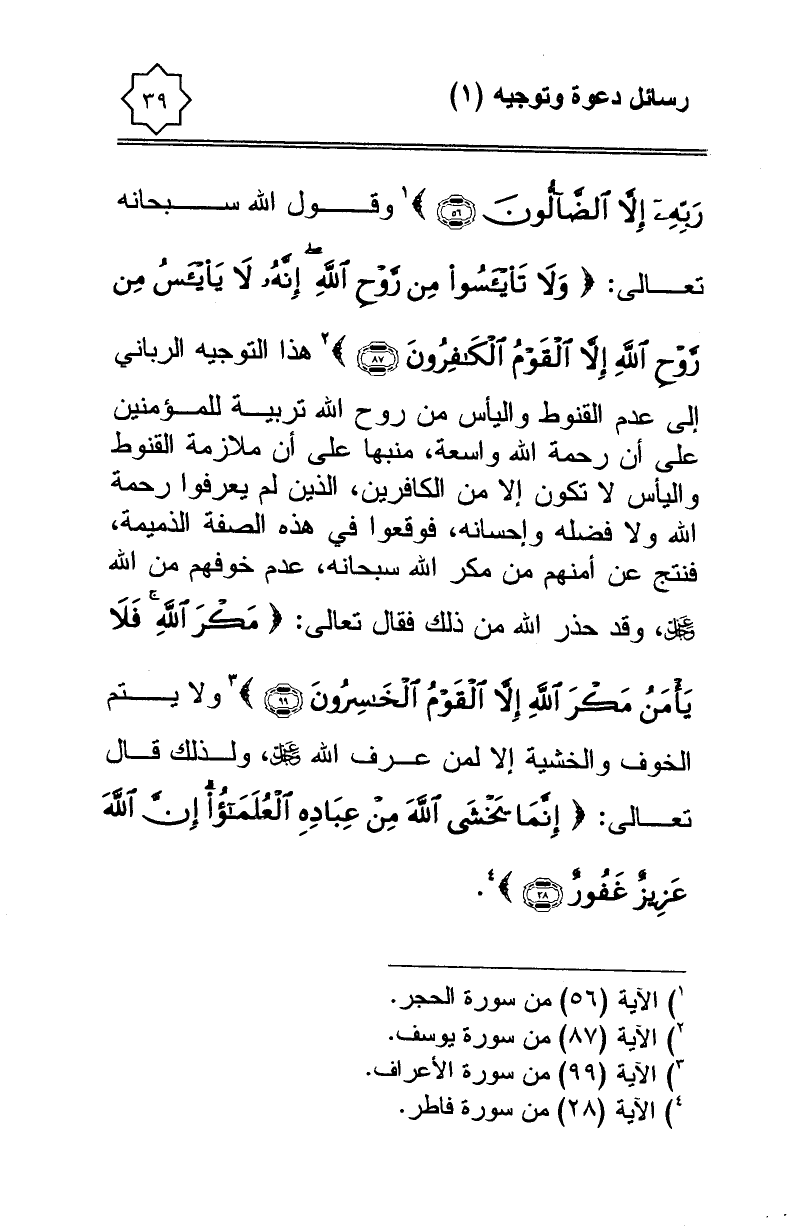 رسائل دعوة وتوجيه (١)
٣٩
رَبِّهِۦٓ إِلَّا ٱلضَّآلُّونَ ٥٦ ﴾١ وقول الله سبحانه
تعالى: ﴿ وَلَا تَاْيْـَٔسُوا۟ مِن رَّوْحِ ٱللَّهِ ۖ إِنَّهُۥ لَا يَاْيْـَٔسُ مِن
رَّوْحِ ٱللَّهِ إِلَّا ٱلْقَوْمُ ٱلْكَـٰفِرُونَ ٨٧ ﴾٢ هذا التوجيه الرباني
إلى عدم القنوط واليأس من روح الله تربية للمؤمنين
على أن رحمة الله واسعة، منبها على أن ملازمة القنوط
واليأس لا تكون إلا من الكافرين، الذين لم يعرفوا رحمة
الله ولا فضله وإحسانه، فوقعوا في هذه الصفة الذميمة،
فنتج عن أمنهم من مكر الله سبحانه، عدم خوفهم من الله
عز وجل، وقد حذر الله من ذلك فقال تعالى: ﴿ مَكْرَ ٱللَّهِ ۚ فَلَا
يَأْمَنُ مَكْرَ ٱللَّهِ إِلَّا ٱلْقَوْمُ ٱلْخَـٰسِرُونَ ٩٩ ﴾٣ ولا يتم
الخوف والخشية إلا لمن عرف الله عز وجل، ولذلك قال
تعالى: ﴿ إِنَّمَا يَخْشَى ٱللَّهَ مِنْ عِبَادِهِ ٱلْعُلَمَـٰٓؤُا۟ ۗ إِنَّ ٱللَّهَ
عَزِيزٌ غَفُورٌ ٢٨ ﴾٤.
١) الآية (٥٦) من سورة الحجر.
٢) الآية (٨٧) من سورة يوسف.
٣) الآية (٩٩) من سورة الأعراف.
٤) الآية (٢٨) من سورة فاطر.